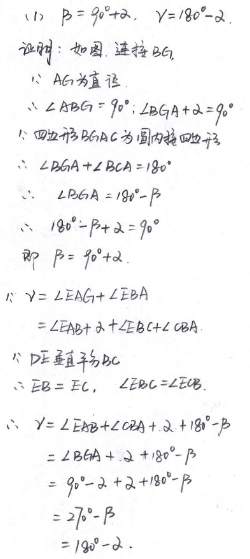 (1) β=90°+α, γ=180°-α.
证明：如图,连接BG,
∵ AG为直径
∴ ∠ABG=90°; ∠BGA+α=90°
∵ 四边形BGAC为圆内接四边形
∴ ∠BGA+∠BCA=180°
∴ ∠BGA=180°-β
∴ 180°-β+α=90°
即 β=90°+α.
∵ γ=∠EAG+∠EBA
=∠EAB+α+∠EBC+∠CBA.
∵ DE垂直平分BC
∴ EB=EC, ∠EBC=∠ECB.
∴ γ=∠EAB+∠CBA+α+180°-β
=∠BGA+α+180°-β
=90°-α+α+180°-β
=270°-β
=180°-α.